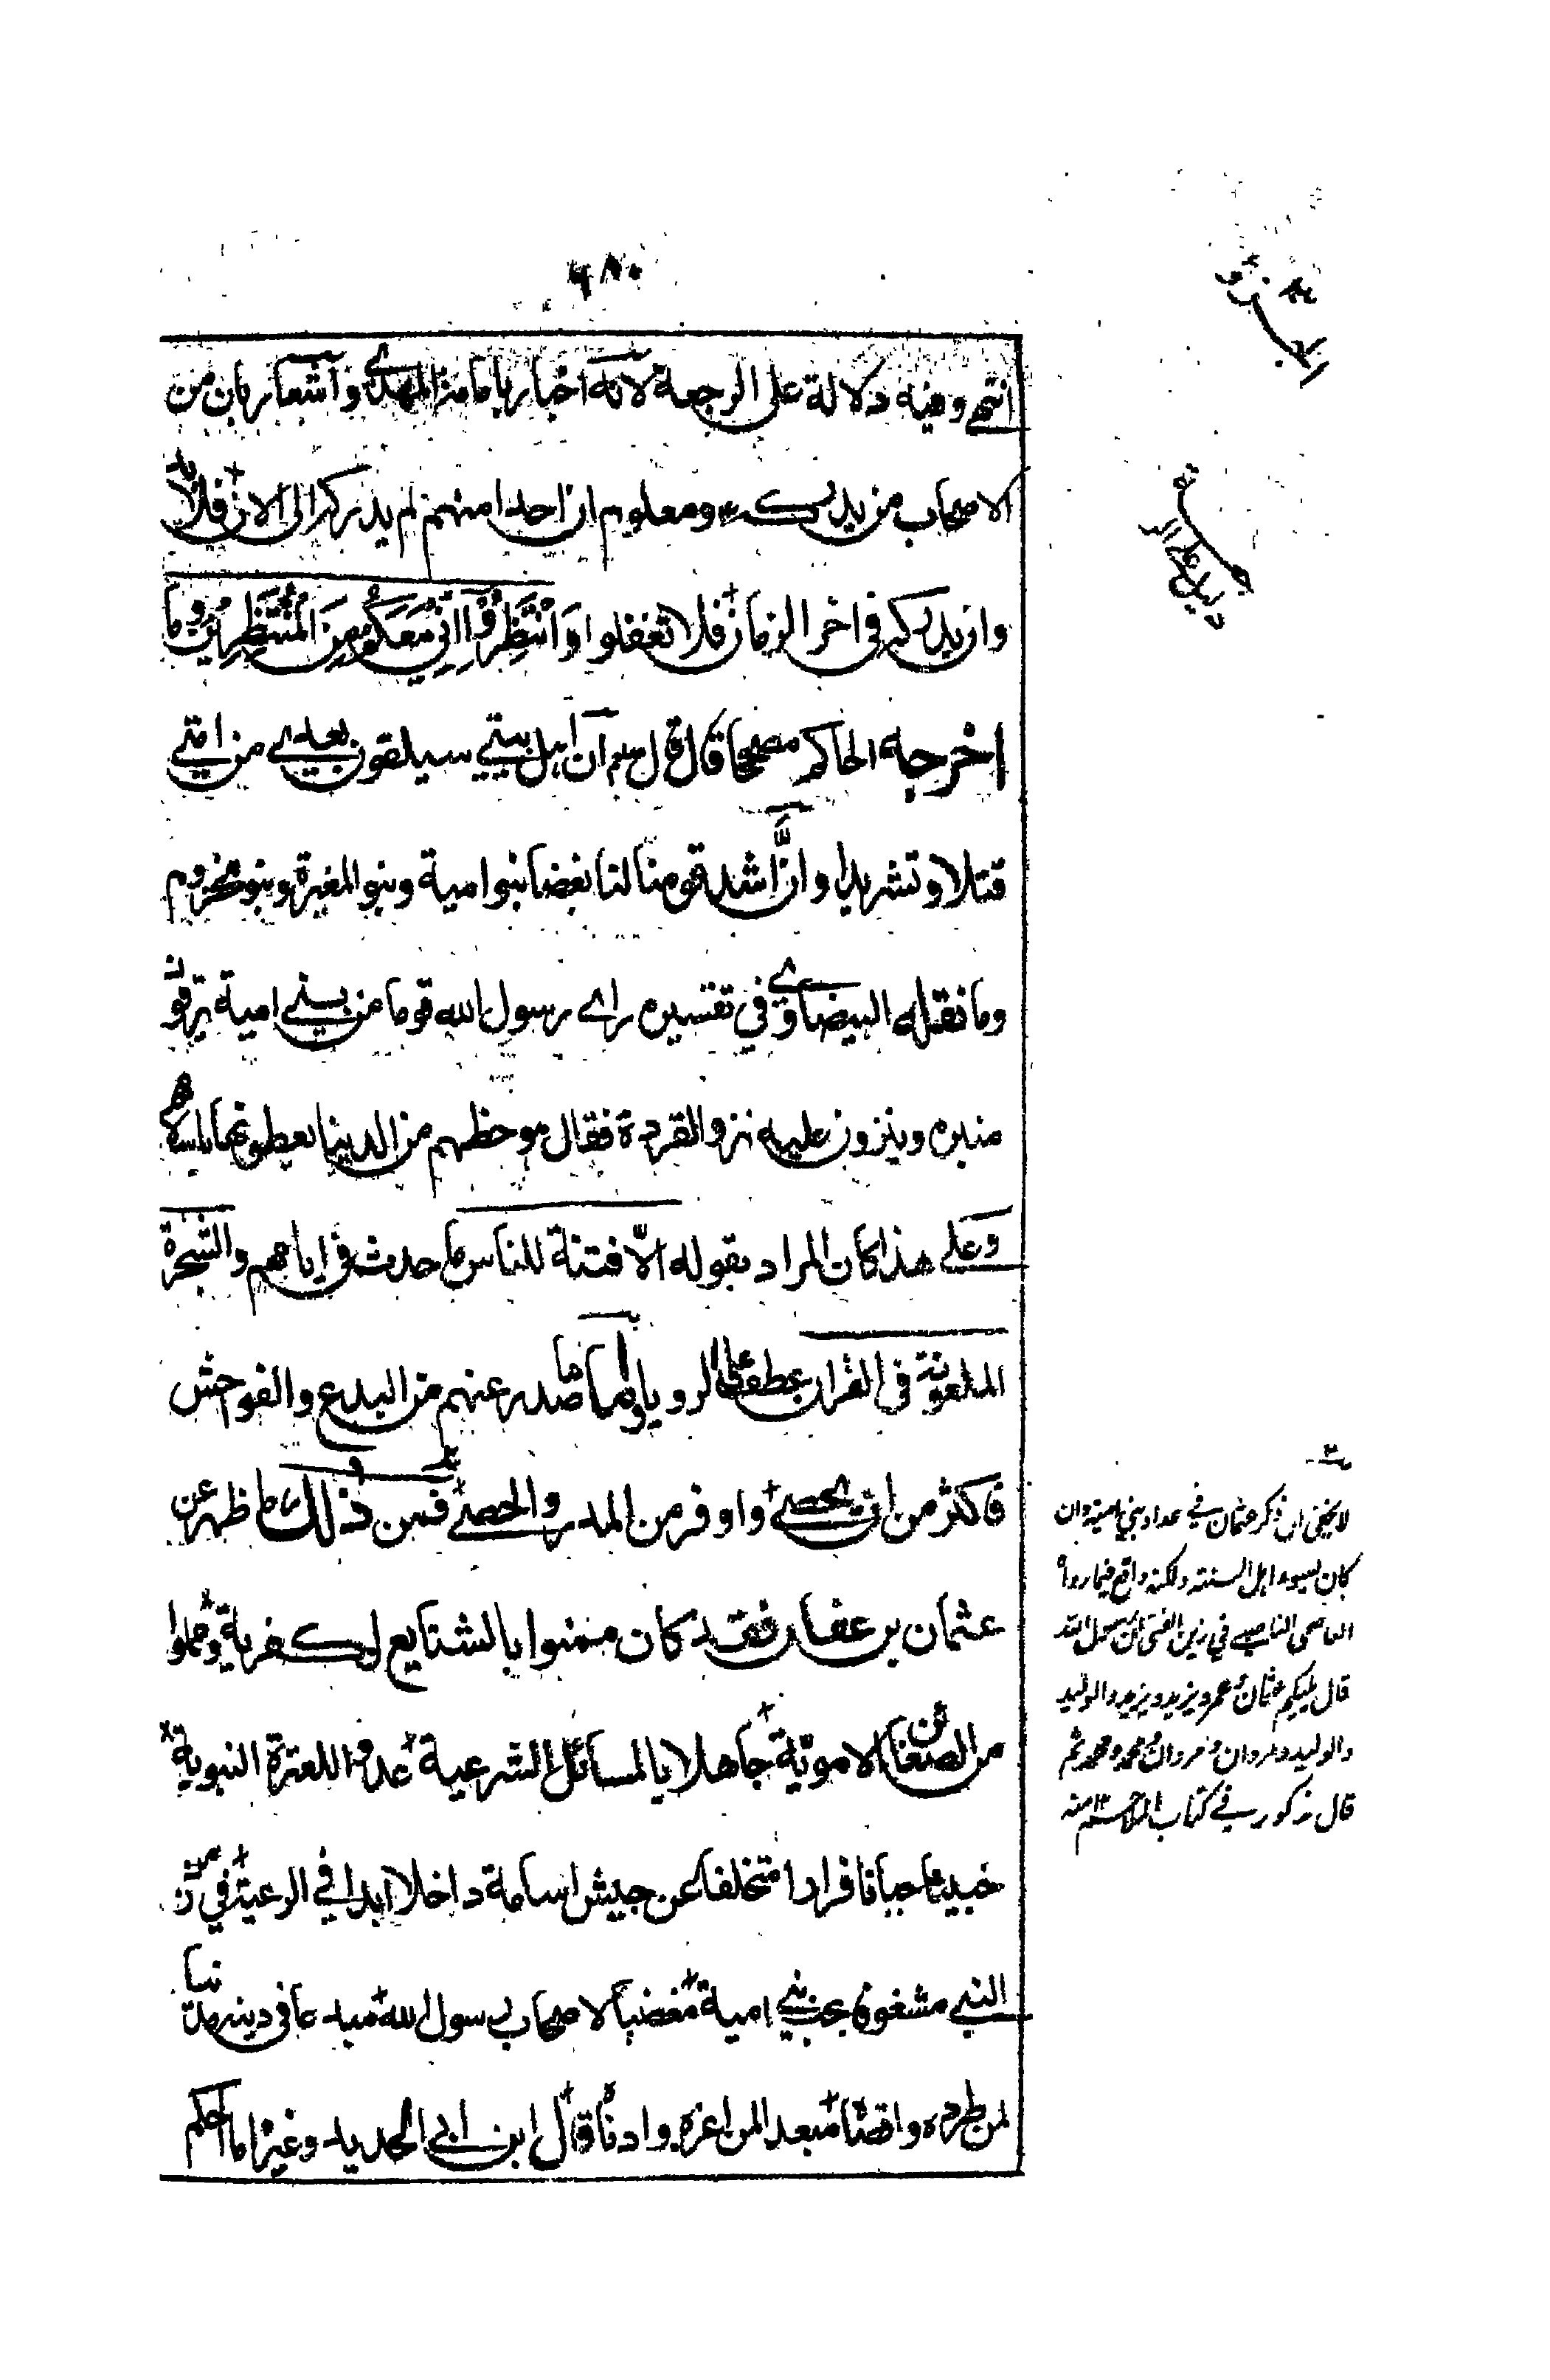 ٦٨٠
انتهى وفيه دلالة على الرجعة لانه اخبار بامامة المهدي واشعار بان من
الاصحاب من يدركه ومعلوم ان احدا منهم لم يدركه الى الان فلا بد
وان يدركه في اخر الزمان فلا تغفلوا وَانْتَظِرُوْا اِنِّي مَعَكُمْ مِنَ الْمُنْتَظِرِيْنَ وما
اخرجه الحاكم مصححا قال قال صلعم ان اهل بيتي سيلقون بعدي من امتي
قتلا وتشريدا وانّ اشد قومنا لنا بغضا بنو امية وبنو المغيرة وبنو مخزوم
وما نقله البيضاوي في تفسيره راى رسول الله قوما من بني امية يرقون
منبره وينزون عليه نزو القردة فقال هو حظهم من الدنيا يعطونها باسلامهم
وعلى هذا كان المراد بقوله الّا فتنة للناس ما حدث في ايامهم والشجرة
الملعونة في القران عطف على الرويا واما ما صدر عنهم من البدع والفواحش
فاكثر من ان يحصى واوفر من المدر والحصى فمن ذلك ما ظهر عن
عثمان بن عفان فقد كان ممنوا بالشنايع الكفرية ومملوا
من الضغائن الاموية جاهلا بالمسائل الشرعية عدوا للعترة النبوية
خبيثا جبانا فرارا متخلفا عن جيش اسامة داخلا ابدا في الرعية في زمن
النبي مشغوفا بحب بني امية مغضبا لاصحاب رسول الله مبدعا في دينه
لمن طرده واقصا مبعدا لمن اعزه وادنا قال ابن ابي الحديد وغيره اما الحكم
دليل على الرجعة
لا يخفى ان ذكر عثمان في عداد بني امية وان
كان يسوء اهل السنة ولكنه واقع فيما رواه
العاصمي الناصبي في زين الفتى ان رسول الله
قال يليكم عثمان وعمر ويزيد ويزيد والوليد
والوليد ومروان ومروان ومحمد ومحمد ثم
قال مذكور في كتاب ١٢ منه